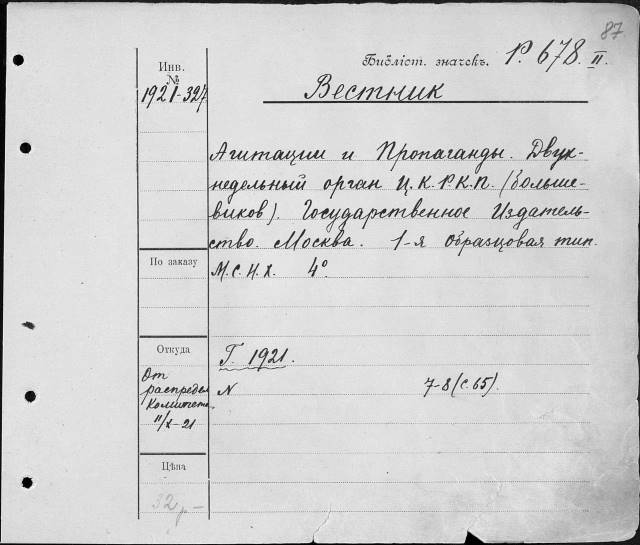 87
Библіот. значекъ. Р. 678. II.
Инв.
№
1921-327
Вестник
Агитации и Пропаганды. Двух-
недельный орган Ц.К.Р.К.П. (больше-
виков). Государственное Издатель-
ство. Москва. 1-я Образцовая тип.
По заказу
М.С.Н.Х. 4°
Откуда
Г. 1921.
От
распредел.
Комитета
11/X-21
N 7-8 (с. 65).
Цѣна
32 р –